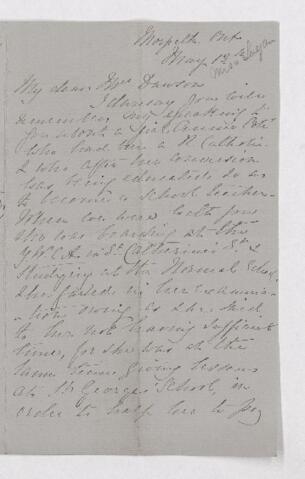 Morpeth Ont
May 1st
Miss Dugan
My dear Mrs Dawson
I daresay you will
remember my speaking to
you about a
who had been a R Catholic
& who after her conversion
was being educated so as
to become a school teacher.
When we were with you
she was boarding at the
Y.W.C.A. in St Catherine's St. &
studying at the Normal School.
She failed in her examina-
tion owing as she said
to her not having sufficient
time, for she was at the
same time giving lessons
at St George's School, in
order to help her to pay